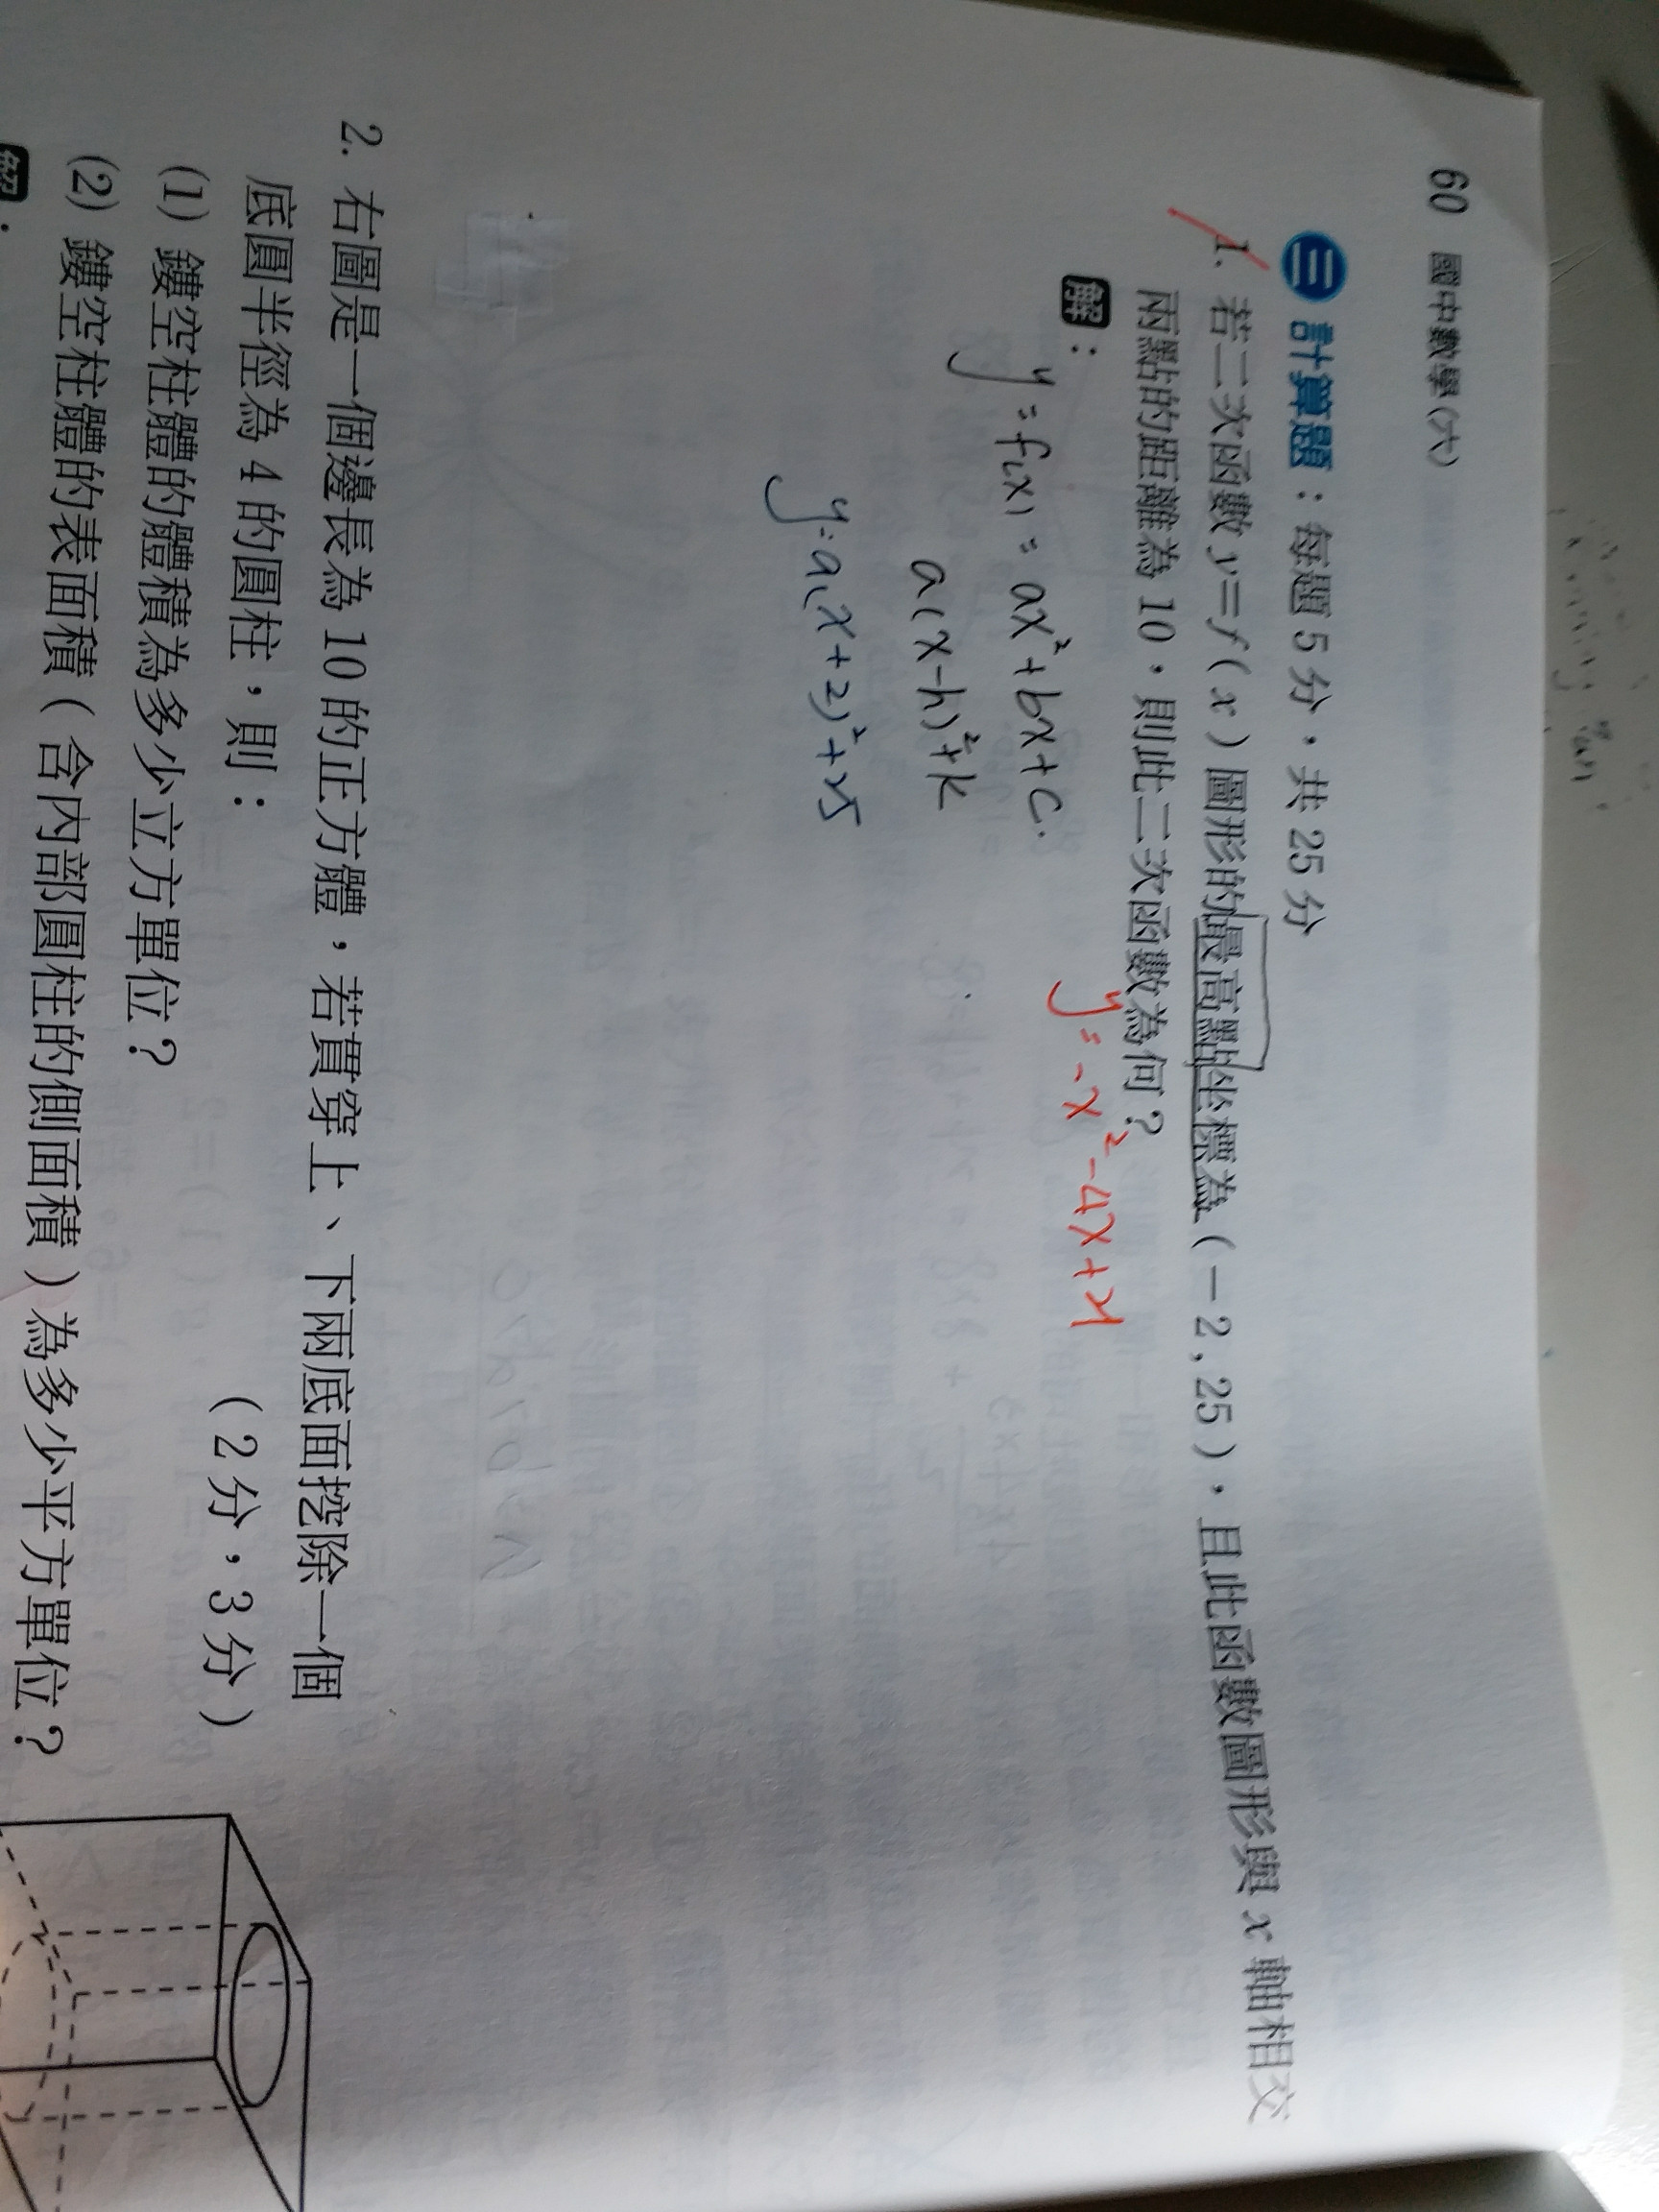 60 國中數學(六)
三 計算題：每題 5 分，共 25 分
1. 若二次函數 y＝f( x ) 圖形的最高點坐標為 (－2 , 25 )，且此函數圖形與 x 軸相交
兩點的距離為 10，則此二次函數為何？
y = -x² - 4x + 21
解：
y = f(x) = ax² + bx + c.
a(x-h)² + k
y = a(x+2)² + 25
2. 右圖是一個邊長為 10 的正方體，若貫穿上、下兩底面挖除一個
底圓半徑為 4 的圓柱，則：
（2 分，3 分）
(1) 鏤空柱體的體積為多少立方單位？
(2) 鏤空柱體的表面積（含內部圓柱的側面積）為多少平方單位？
解：